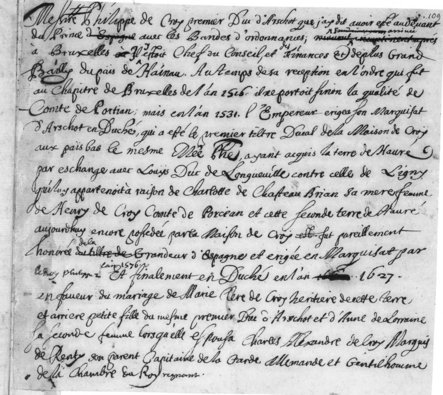 Messire Philippe de Croy premier Duc d'Arschot que j'ay dit avoir esté au devant
du Prince avec les Bandes d'ordonnances,
a Bruxelles Chef du Conseil, et des finances et de plus Grand
Bailly du païs de Hainau. Au temps de sa reception en l'ordre qui fut
au Chapitre de Bruxelles de l'an 1516 il ne portoit sinon la qualité de
Comte de Portian; mais en l'an 1531. l'Empereur erigea son Marquisat
d'Arschot en Duché, qui a esté le premier tiltre Ducal de la Maison de Croy
aux païs bas le mesme Mre Phe ayant acquis la terre de Haure
par eschange avec Louys Duc de Longueville contre celle de Ligny
qui luy appartenoit a raison de Charlotte de Chasteau Brian sa mere femme
de Henry de Croy Comte de Porcean et cette seconde terre de Hauré
aujourdhuy encore possedée par la Maison de Croy fut pareillement
honorée de la Grandeur d'Espagne et erigée en Marquisat par
le Roy Philippe 2 l'an 1576. Et finalement en Duché en l'an 1627.
en faveur du mariage de Marie Clere de Croy heritiere de cette terre
et arriere petite fille du mesme premier Duc d'Arschot et d'Anne de Lorraine
sa seconde femme lorsqu'elle espousa Charles Alexandre de Croy Marquis
de Renty son parent Capitaine de la Garde Allemande et Gentilhomme
de la Chambre du Roy